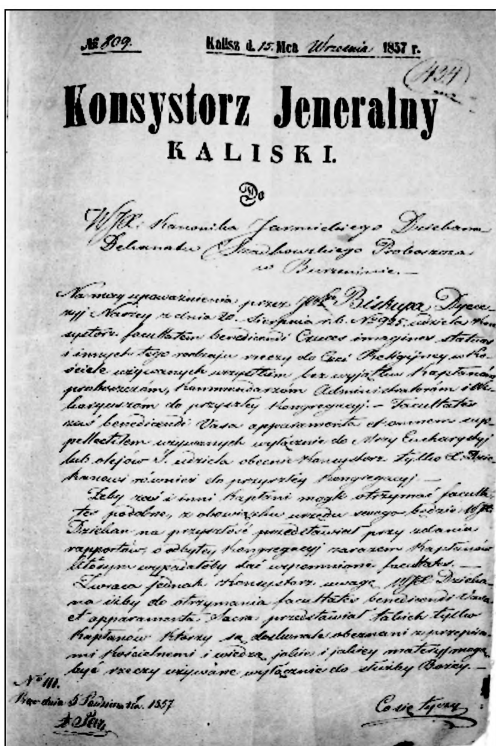 № 809. Kalisz d. 15. Mca Września 1857 r.
434
Konsystorz Jeneralny
KALISKI.
Do
WJX. Kanonika Jarmickiego Dziekana
Dekanatu Szadkowskiego Proboszcza
w Burzeninie. —
Na mocy upoważnienia przez JWgo Biskupa Dyece-
zyi Naszey z dnia 20. Sierpnia r. b. No 925. udziela Kon-
systorz facultatem benedicendi Cruces imagines statuas
i innych tego rodzaju rzeczy do Czci Religijney w Ko-
ściele używanych wszystkim bez wyjątku Kapłanom
proboszczom, Kommendarzom Administratorom i Wi-
karyuszom do przyszłey Kongregacyi. — Facultates
zaś benedicendi Vasa apparamenta et omnem sup-
pellectilem używanych wyłącznie do Mszy Eucharystyi
lub olejów S. udziela obecnie Konsystorz tylko X. Dzie-
kanowi również do przyszłey Kongregacyi —
Żeby zaś i inni Kapłani mogli otrzymać facul-
tes podobne, z obowiązku urzędu swego będzie WJX
Dziekan na przyszłość przedstawiał przy zdaniu
rapportów, o odbytey Kongregacyi zarazem Kapłanów
którym wypadałoby dać wspomnione facultates. —
Zwraca jednak Konsystorz uwagę WJX Dzieka-
na iżby do otrzymania facultates benedicendi Vasa
et apparamenta Sacra przedstawiał takich tylko
Kapłanów którzy są doskonale obeznani z przepisa-
mi kościelnemi i wiedzą jakie i jakiey materyi mogą
być rzeczy używane wyłącznie do służby Bożey. —
No 111.
dnia 5 Października 1857
Co się tyczy